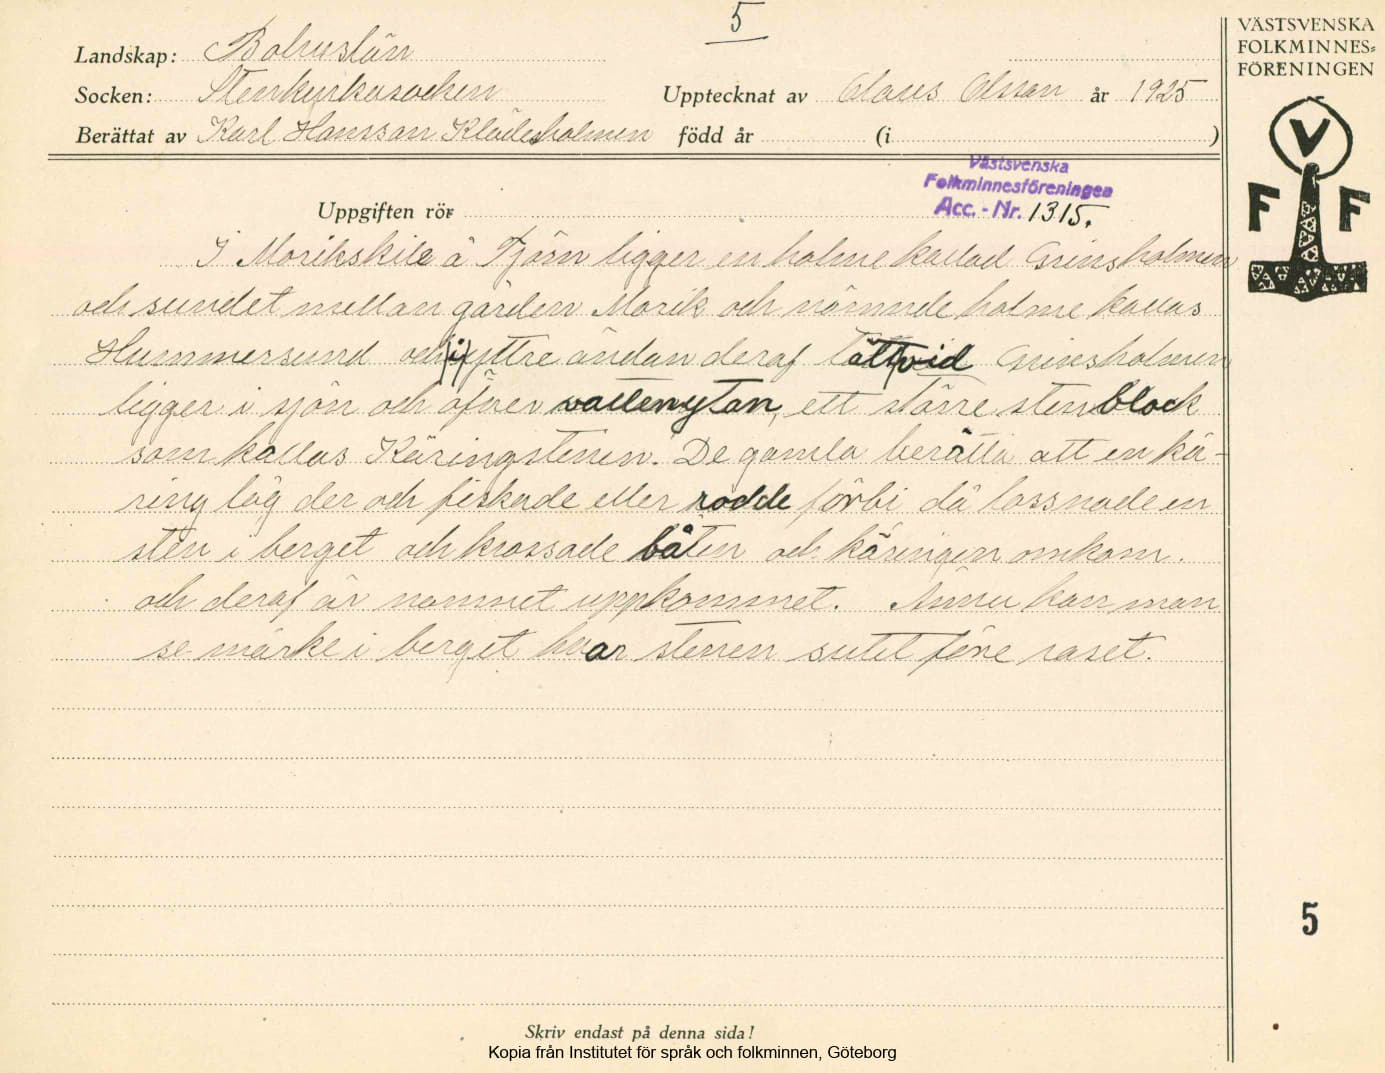 5
Landskap: Bohuslän
Socken: Stenkyrkasocken
Upptecknat av Claus Olsson år 1925
Berättat av Karl Hansson Klädesholmen född år (i )
VÄSTSVENSKA
FOLKMINNES=
FÖRENINGEN
V
F F
Västsvenska
Folkminnesföreningen
Acc. - Nr. 1315.
Uppgiften rör
I Morikskile å Tjörn ligger en holme kallad Grinsholmen
och sundet mellan gården Morik och nämnde holme kallas
Hummersund och (i) yttre ändan deraf tätt vid Grinsholmen
ligger i sjön och öfver vattenytan, ett större stenblock
som kallas Käringstenen. De gamla berätta att en kä-
ring låg der och fiskade eller rodde förbi då lossnade en
sten i berget och krossade båten och käringen omkom.
och deraf är namnet uppkommet. Ännu kan man
se märke i berget hvar stenen sutit före raset.
5
Skriv endast på denna sida!
Kopia från Institutet för språk och folkminnen, Göteborg